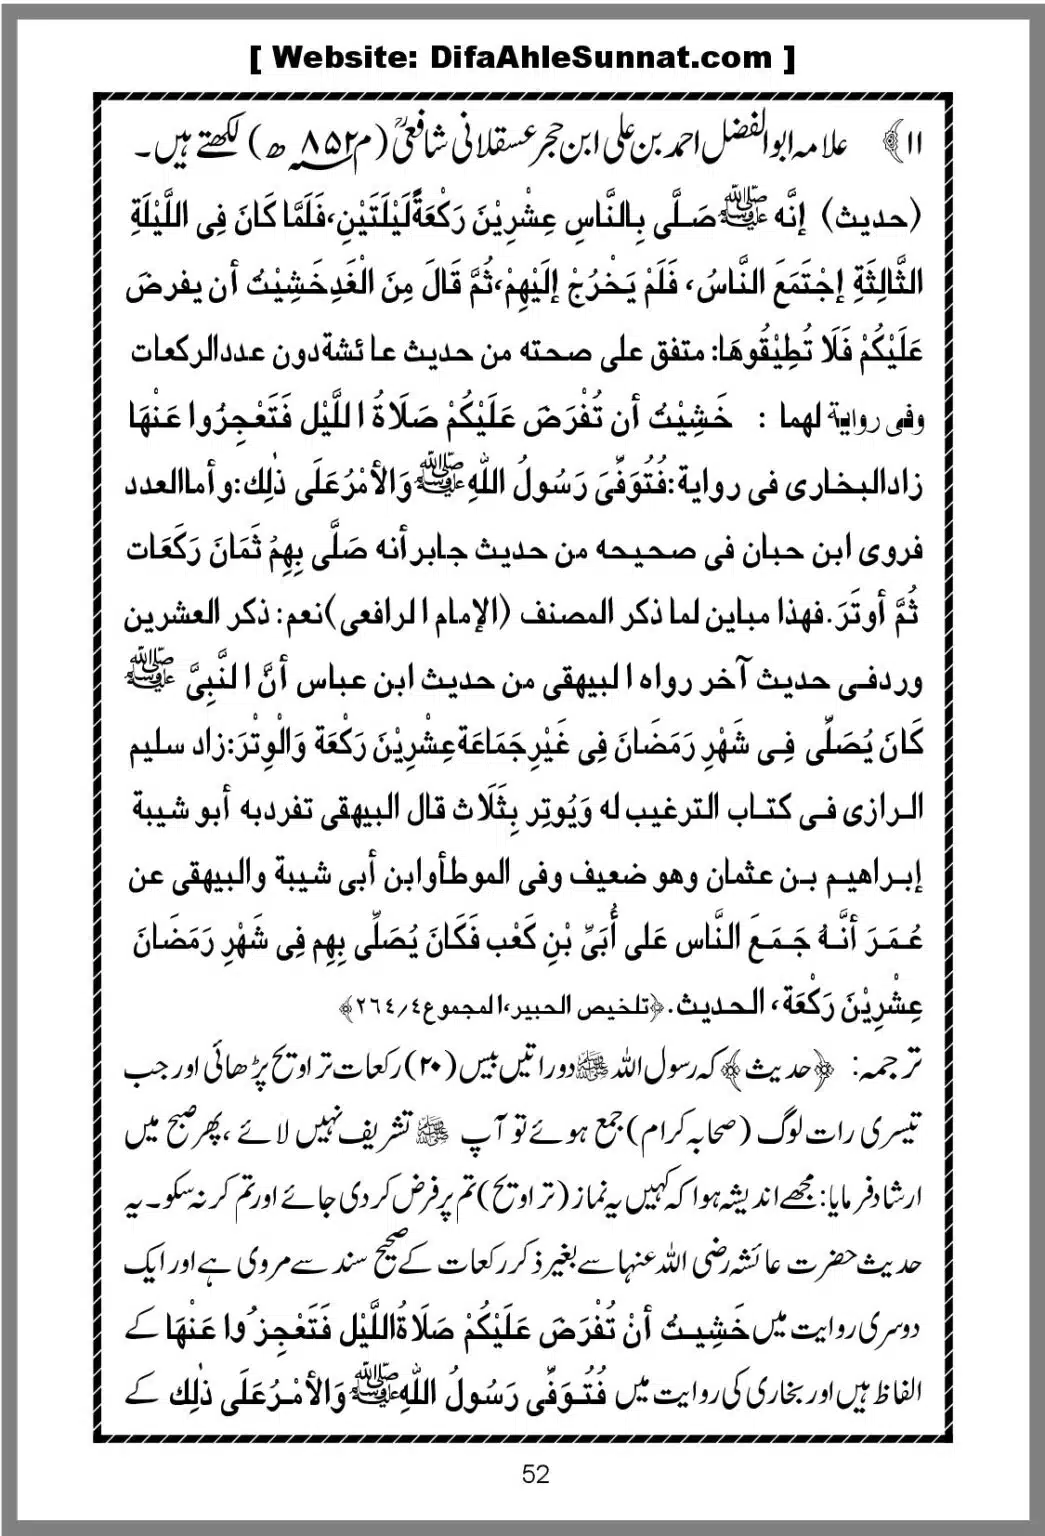 [ Website: DifaAhleSunnat.com ]
۱۱﴾ علامہ ابوالفضل احمد بن علی ابن حجر عسقلانی شافعیؒ (م ۸۵۲ھ) لکھتے ہیں۔
(حدیث) إنَّه ﷺ صَلَّى بِالنَّاسِ عِشْرِيْنَ رَكْعَةً لَيْلَتَيْنِ، فَلَمَّا كَانَ فِى اللَّيْلَةِ
الثَّالِثَةِ إجْتَمَعَ النَّاسُ، فَلَمْ يَخْرُجْ إلَيْهِمْ، ثُمَّ قَالَ مِنَ الْغَدِ خَشِيْتُ أن يفرضَ
عَلَيْكُمْ فَلَا تُطِيْقُوهَا: متفق على صحته من حديث عائشة دون عدد الركعات
وفى رواية لهما : خَشِيْتُ أن تُفْرَضَ عَلَيْكُمْ صَلَاةُ اللَّيْل فَتَعْجِزُوا عَنْهَا
زاد البخارى فى رواية: فَتُوَفِّىَ رَسُولُ اللّٰهِ ﷺ وَالأمْرُ عَلَى ذٰلِك: وأما العدد
فروى ابن حبان فى صحيحه من حديث جابر أنه صَلَّى بِهِمْ ثَمَانَ رَكَعَات
ثُمَّ أوتَرَ. فهذا مباين لما ذكر المصنف (الإمام الرافعى) نعم: ذكر العشرين
ورد فى حديث آخر رواه البيهقى من حديث ابن عباس أنَّ النَّبِىَّ ﷺ
كَانَ يُصَلِّى فِى شَهْرِ رَمَضَانَ فِى غَيْرِ جَمَاعَة عِشْرِيْنَ رَكْعَة وَالْوِتْرَ: زاد سليم
الرازى فى كتاب الترغيب له وَيُوتِر بِثَلَاث قال البيهقى تفرد به أبو شيبة
إبراهيم بن عثمان وهو ضعيف وفى الموطأ وابن أبى شيبة والبيهقى عن
عُمَرَ أنَّهُ جَمَعَ النَّاس عَلى أُبَىِّ بْنِ كَعْب فَكَانَ يُصَلِّى بِهِم فِى شَهْرِ رَمَضَانَ
عِشْرِيْنَ رَكْعَة، الحديث. ﴿تلخيص الحبير، المجموع ۲۶۴/۴﴾
ترجمہ: ﴿حدیث﴾ کہ رسول اللہ ﷺ دو راتیں بیس (۲۰) رکعات تراویح پڑھائی اور جب
تیسری رات لوگ (صحابہ کرام) جمع ہوئے تو آپ ﷺ تشریف نہیں لائے، پھر صبح میں
ارشاد فرمایا: مجھے اندیشہ ہوا کہ کہیں یہ نماز (تراویح) تم پر فرض کر دی جائے اور تم کر نہ سکو۔ یہ
حدیث حضرت عائشہ رضی اللہ عنہا سے بغیر ذکر رکعات کے صحیح سند سے مروی ہے اور ایک
دوسری روایت میں خَشِيْتُ أنْ تُفْرَضَ عَلَيْكُمْ صَلَاةُ اللَّيْل فَتَعْجِزُوا عَنْهَا کے
الفاظ ہیں اور بخاری کی روایت میں فَتُوَفِّى رَسُولُ اللّٰهِ ﷺ وَالأمْرُ عَلَى ذٰلِك کے
52